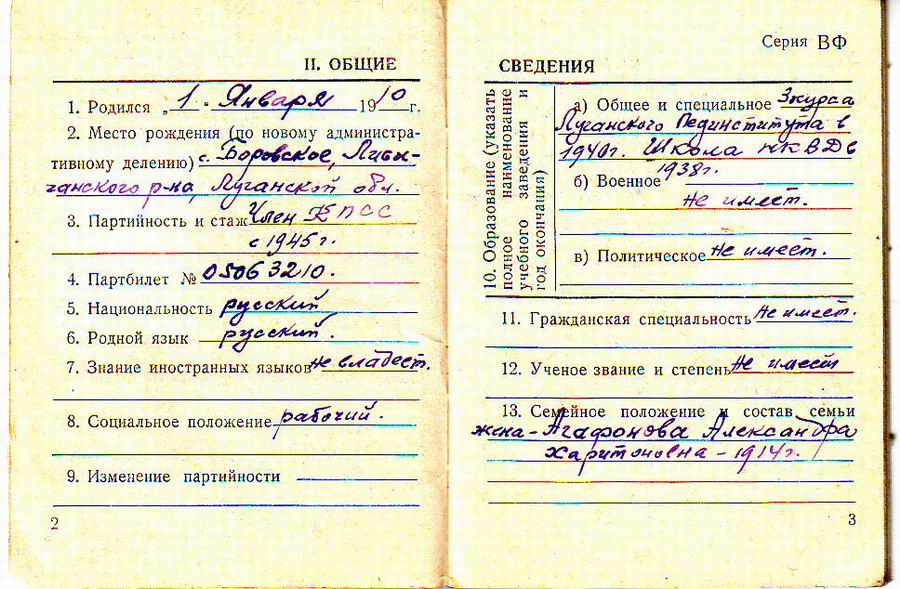 II. ОБЩИЕ
1. Родился „1" Января 1910 г.
2. Место рождения (по новому администра-
тивному делению) с. Боровское, Лисич-
чанского р-на, Луганской обл.
3. Партийность и стаж Член КПСС
с 1945 г.
4. Партбилет № 05063210.
5. Национальность русский
6. Родной язык русский.
7. Знание иностранных языков Не владеет.
8. Социальное положение рабочий.
9. Изменение партийности
2
Серия ВФ
СВЕДЕНИЯ
10. Образование (указать
полное наименование
учебного заведения и
год окончания)
а) Общее и специальное 3 курса
Луганского Пединститута в
1940 г. Школа НКВД в
1938 г.
б) Военное
Не имеет.
в) Политическое Не имеет.
11. Гражданская специальность Не имеет.
12. Ученое звание и степень Не имеет
13. Семейное положение и состав семьи
жена - Агафонова Александра
Харитоновна - 1914 г.
3